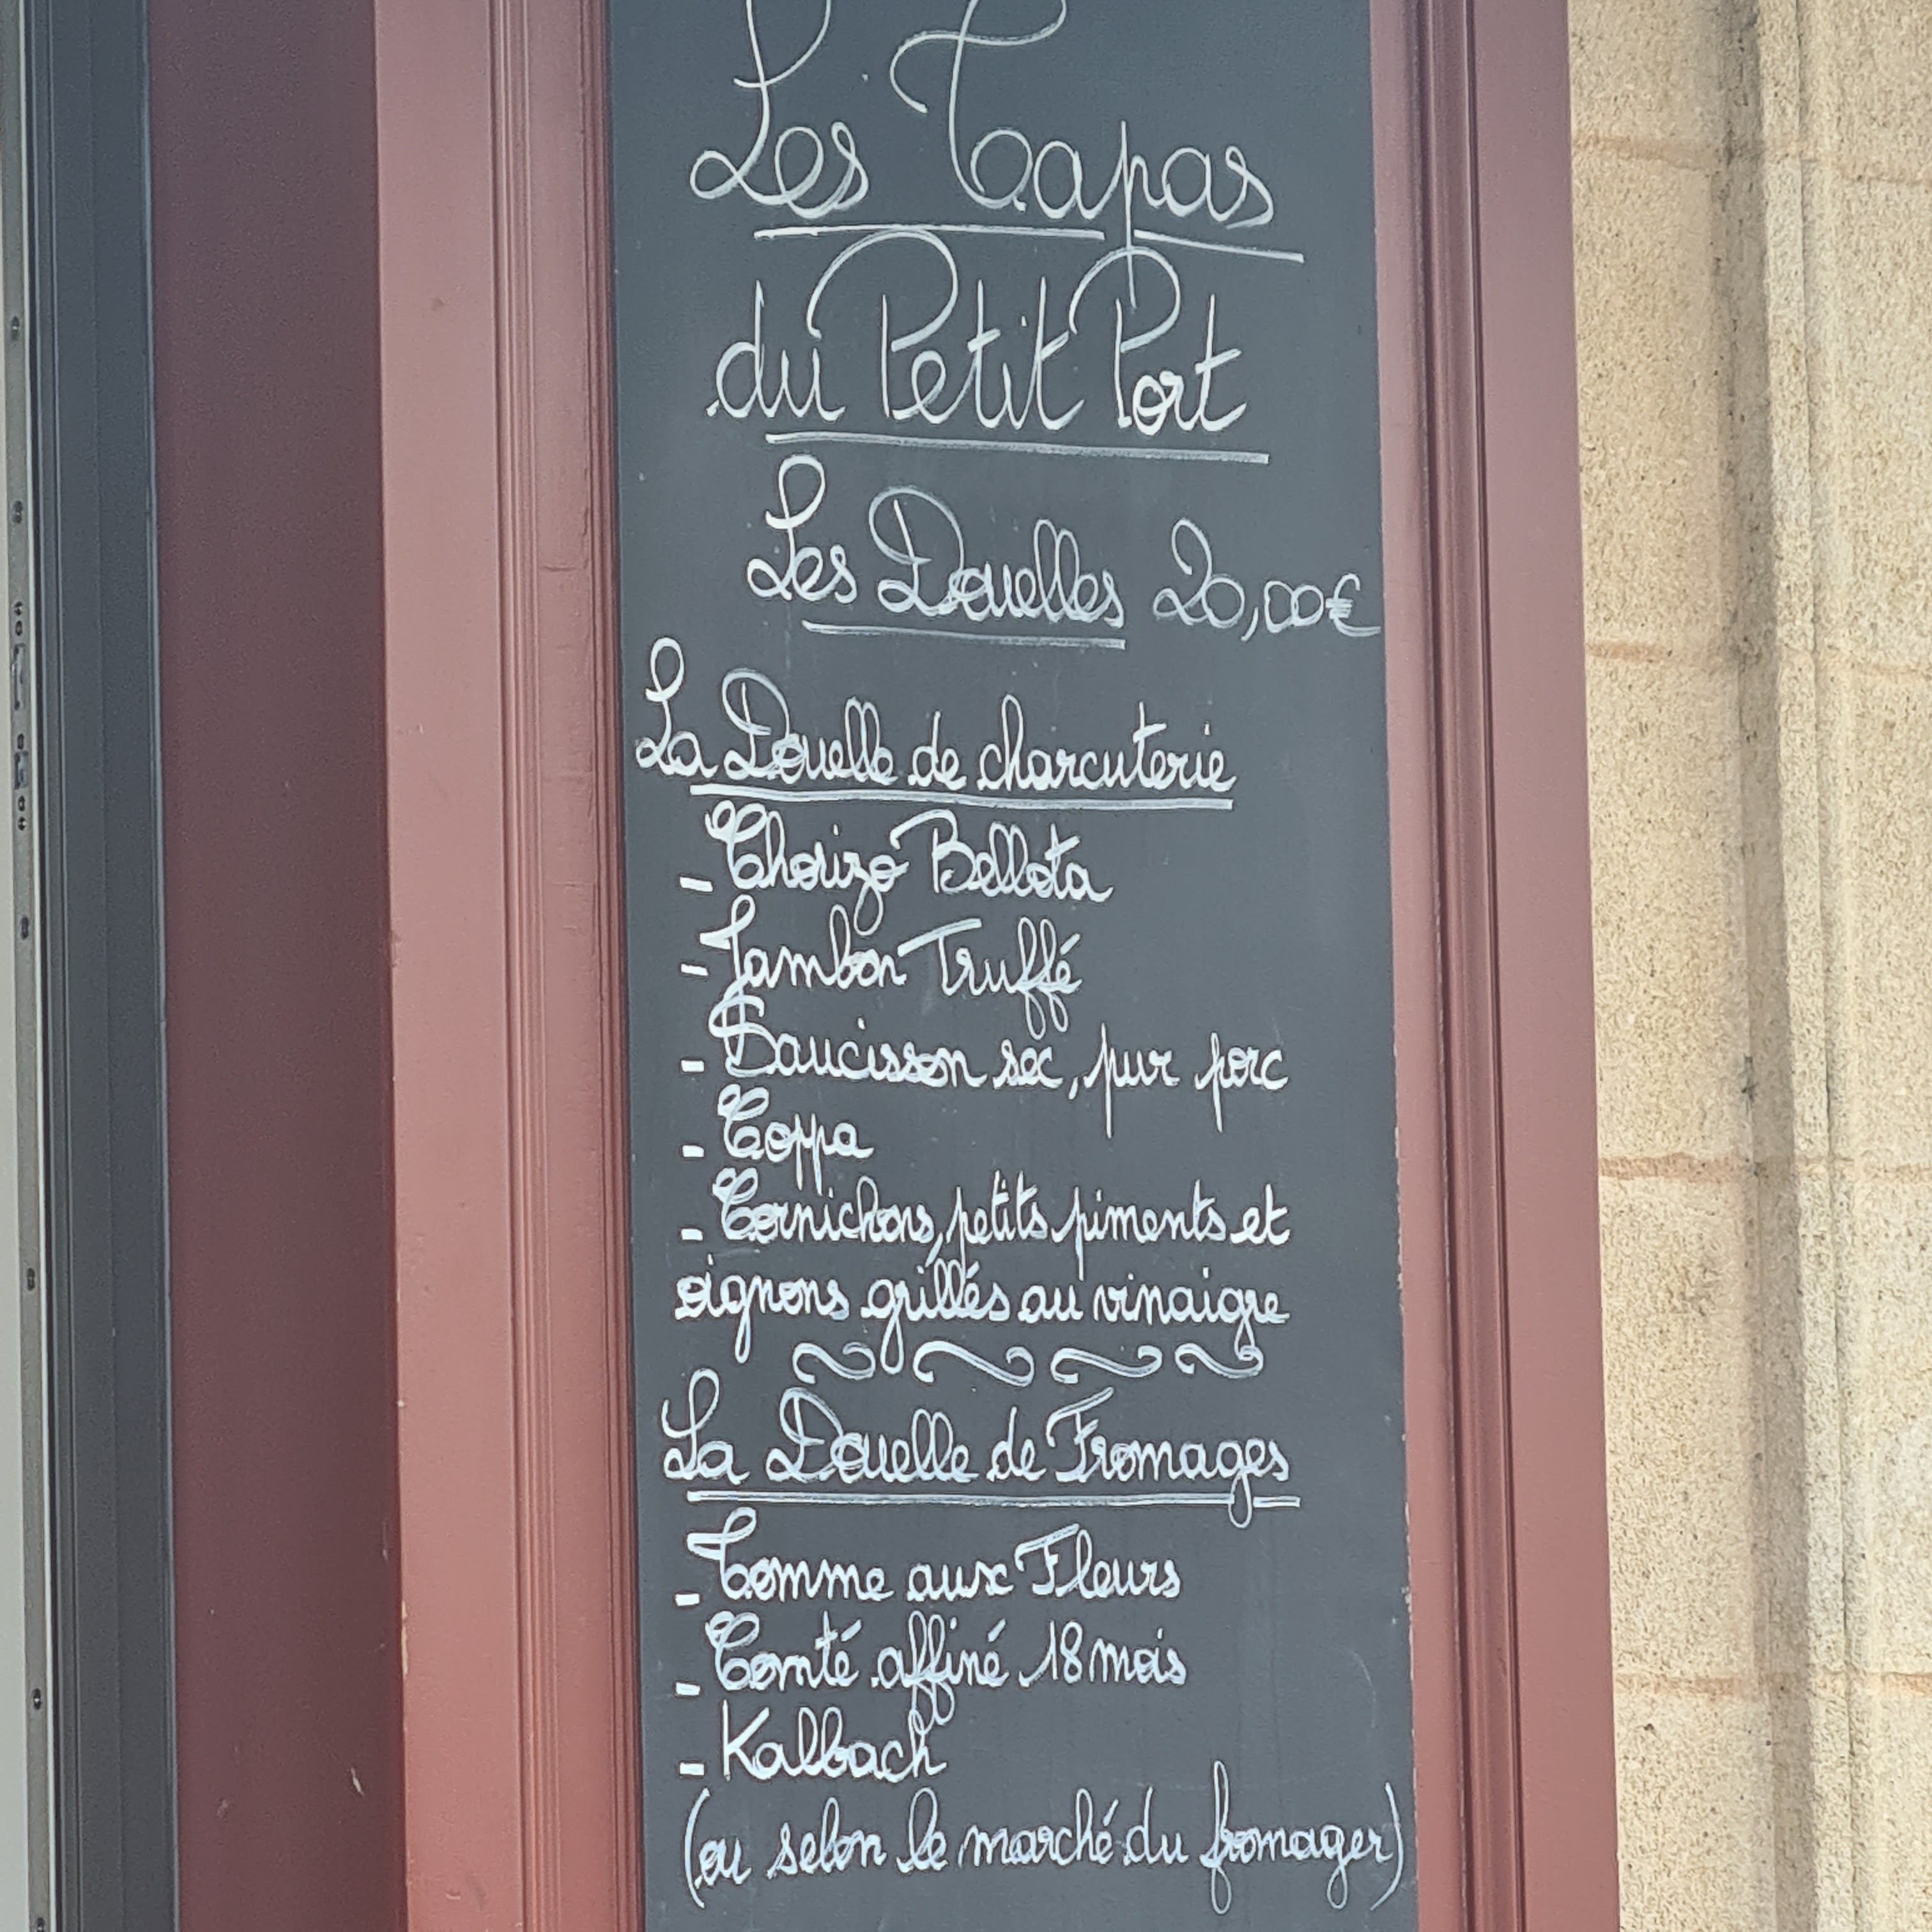 Les Tapas
du Petit Port
Les Douelles 20,00€
La Douelle de charcuterie
- Chorizo Bellota
- Jambon Truffé
- Saucisson sec, pur porc
- Coppa
- Cornichons, petits piments et
oignons grillés au vinaigre
La Douelle de Fromages
- Tomme aux Fleurs
- Comté affiné 18 mois
- Kalbach
(ou selon le marché du fromager)